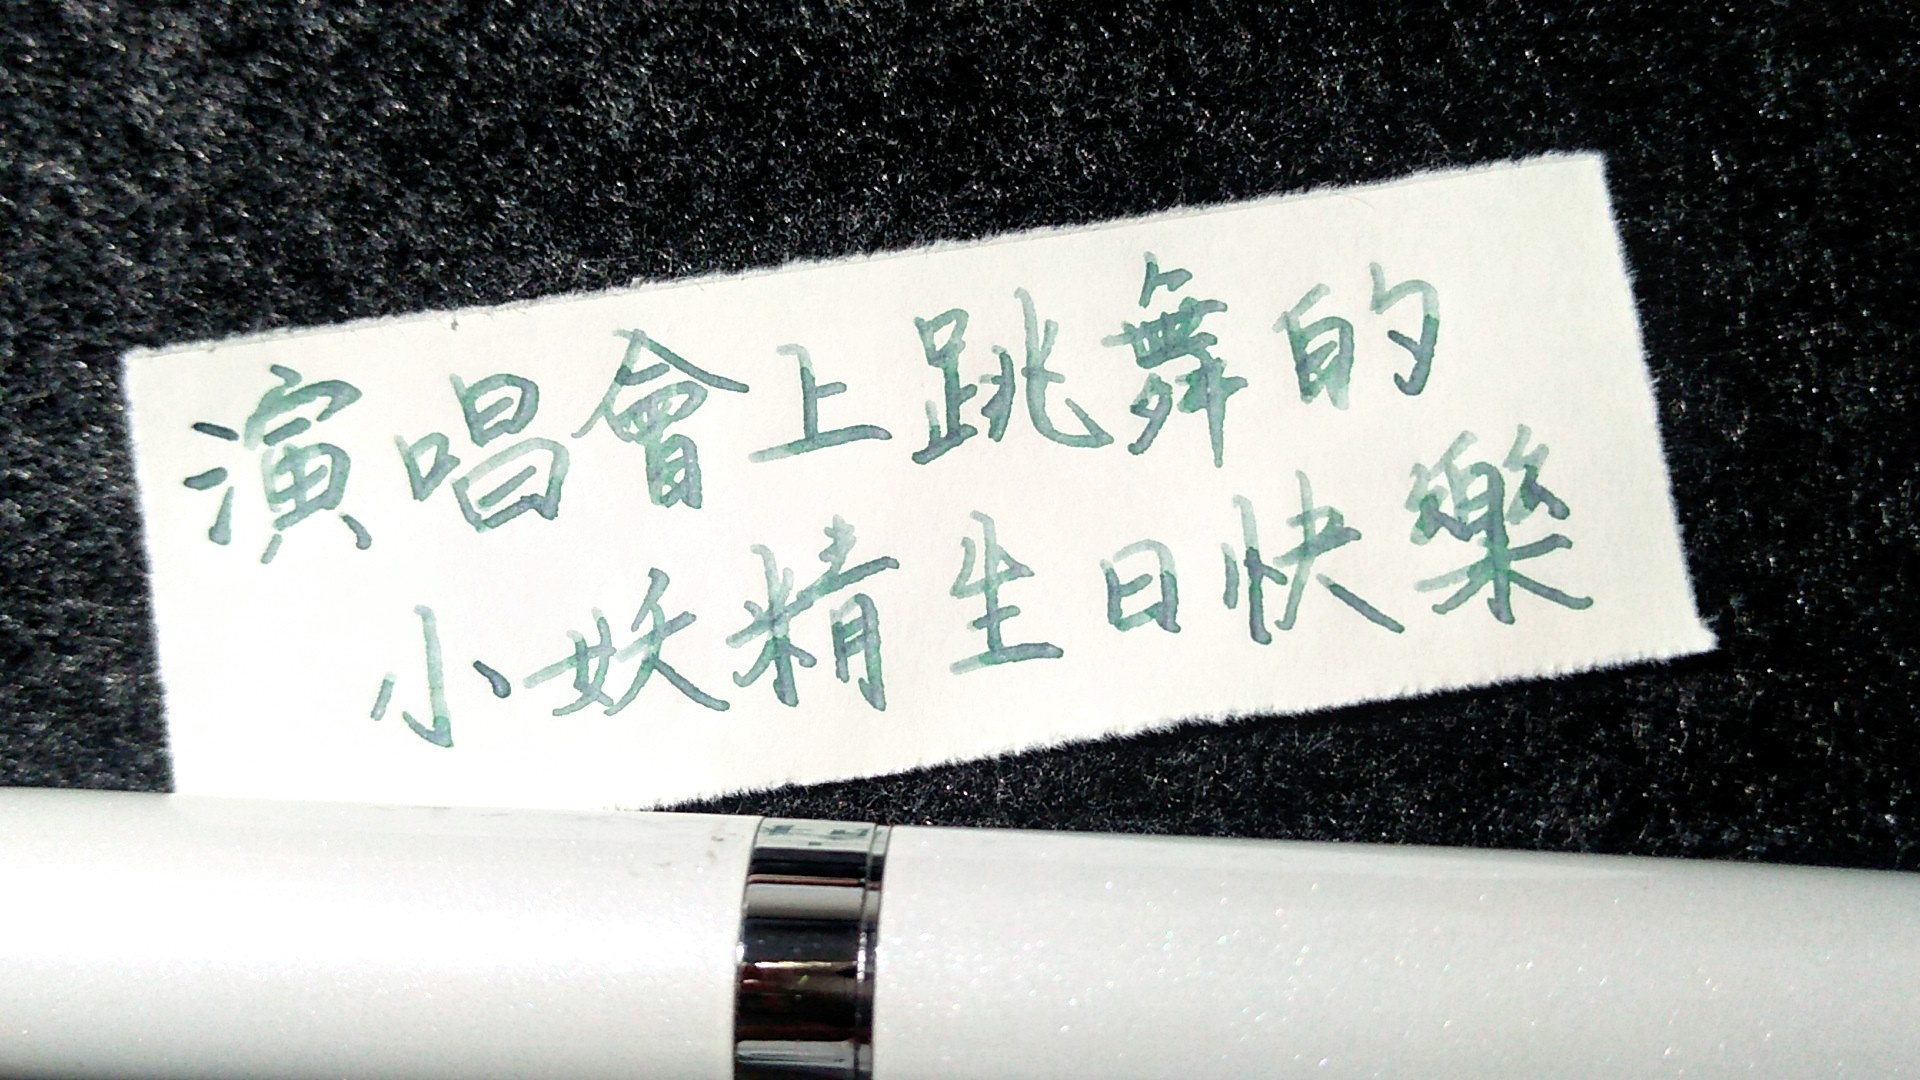 演唱會上跳舞的
小妖精生日快樂